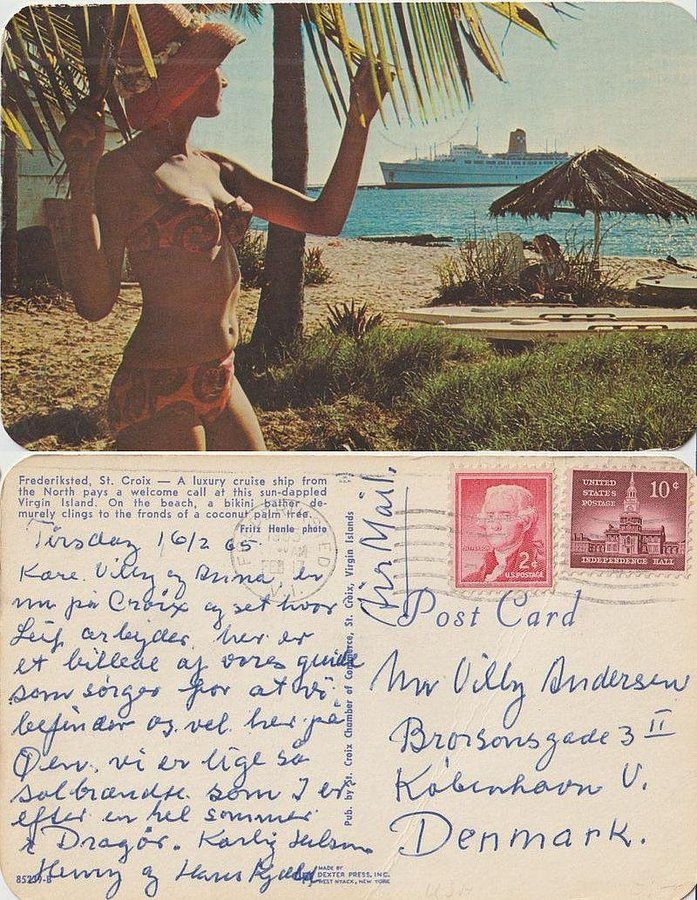 Frederiksted, St. Croix — A luxury cruise ship from
the North pays a welcome call at this sun-dappled
Virgin Island. On the beach, a bikini bather de-
murely clings to the fronds of a coconut palm tree.
Fritz Henle photo
Tirsdag 16/2 65.
Kære Villy og Anna, er
nu på Croix og set hvor
Leif arbejder, her er
et billede af vores guide
som sørger for at vi
befinder os vel her på
Øen, vi er lige så
solbrændte som I er
efter en hel sommer
i Dragør. Kærlig Hilsen
Henry og Hans
85239-B
Pub. by St. Croix Chamber of Commerce, St. Croix, Virgin Islands
MADE BY
DEXTER PRESS, INC.
WEST NYACK, NEW YORK
Air Mail.
JEFFERSON
2¢
U.S. POSTAGE
UNITED
STATES
POSTAGE
10¢
INDEPENDENCE HALL
Post Card
Mr Villy Andersen
Brorsonsgade 3 II
København V.
Denmark.